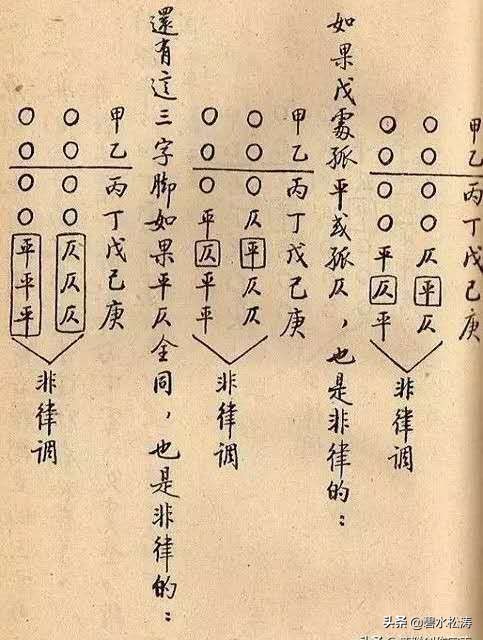 甲乙丙丁戊己庚
○○○○仄平仄
○○○○平仄平
非律调
如果戊處孤平或孤仄，也是非律的：
甲乙丙丁戊己庚
○○○仄平仄仄
○○○平仄平平
非律调
還有這三字脚如果平仄全同，也是非律的：
甲乙丙丁戊己庚
○○○○仄仄仄
○○○○平平平
非律调
头条 @碧水松涛